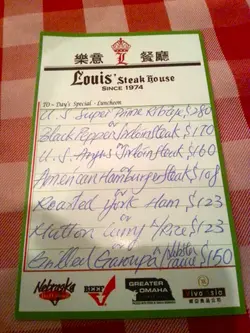 樂意 L 餐廳
Louis' Steak House
SINCE 1974
TO-Day's Special - Luncheon
U.S Super Prime Ribeye $280
or
Black Pepper Sirloin Steak $170
or
U.S. Angus Sirloin Steak $160
or
American Hamburger Steak $108
or
Roasted York Ham $123
or
Mutton Curry Rice $123
or
Grilled Garoupa Lobster Sauce $150
Nebraska
BEEF
GREATER OMAHA